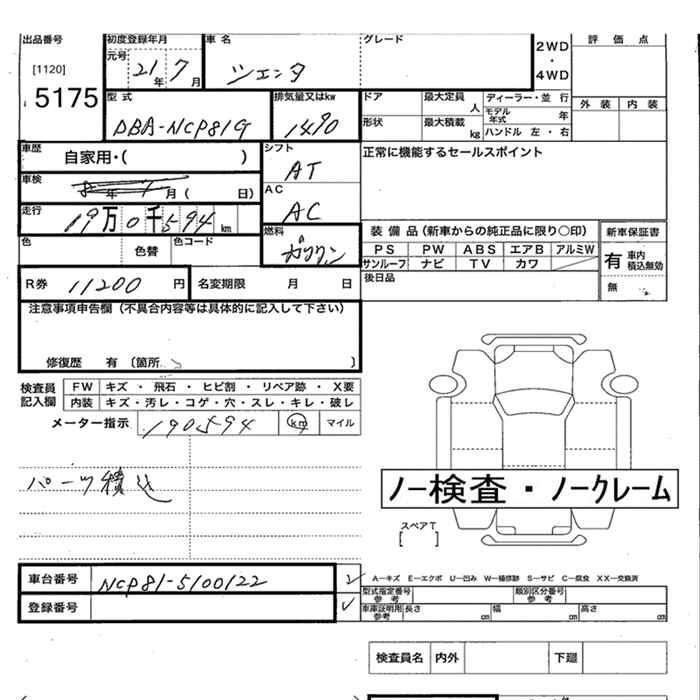 出品番号 初度登録年月 車名 グレード 2WD・4WD 評価点
[1120] 元号 21年 7月 シエンタ
5175 型式 排気量又はkw ドア 最大定員 人 ディーラー・並行 外装 内装
DBA-NCP81G 1490 形状 最大積載 kg モデル年式 年
ハンドル 左・右
車歴 自家用・( ) シフト AT 正常に機能するセールスポイント
車検 年 月( 日) AC AC
走行 19万0千594km 燃料 ガソリン 装備品(新車からの純正品に限り○印) 新車保証書
色 色替 色コード PS PW ABS エアB アルミW 有 車内積込無効
サンルーフ ナビ TV カワ 無
R券 11200円 名変期限 月 日 後日品
注意事項申告欄(不具合内容等は具体的に記入して下さい)
修復歴 有 〔箇所 〕
検査員記入欄 FW キズ・飛石・ヒビ割・リペア跡・X要
内装 キズ・汚レ・コゲ・穴・スレ・キレ・破レ
メーター指示 190594 km マイル
パーツ積込
ノー検査・ノークレーム
スペアT
[ ]
車台番号 NCP81-5100122
登録番号
A―キズ E―エクボ U―凹み W―補修跡 S―サビ C―腐食 XX―交換済
型式指定番号 参考 類別区分番号 参考
車庫証明用 参考 長さ cm 幅 cm 高さ cm
検査員名 内外 下廻